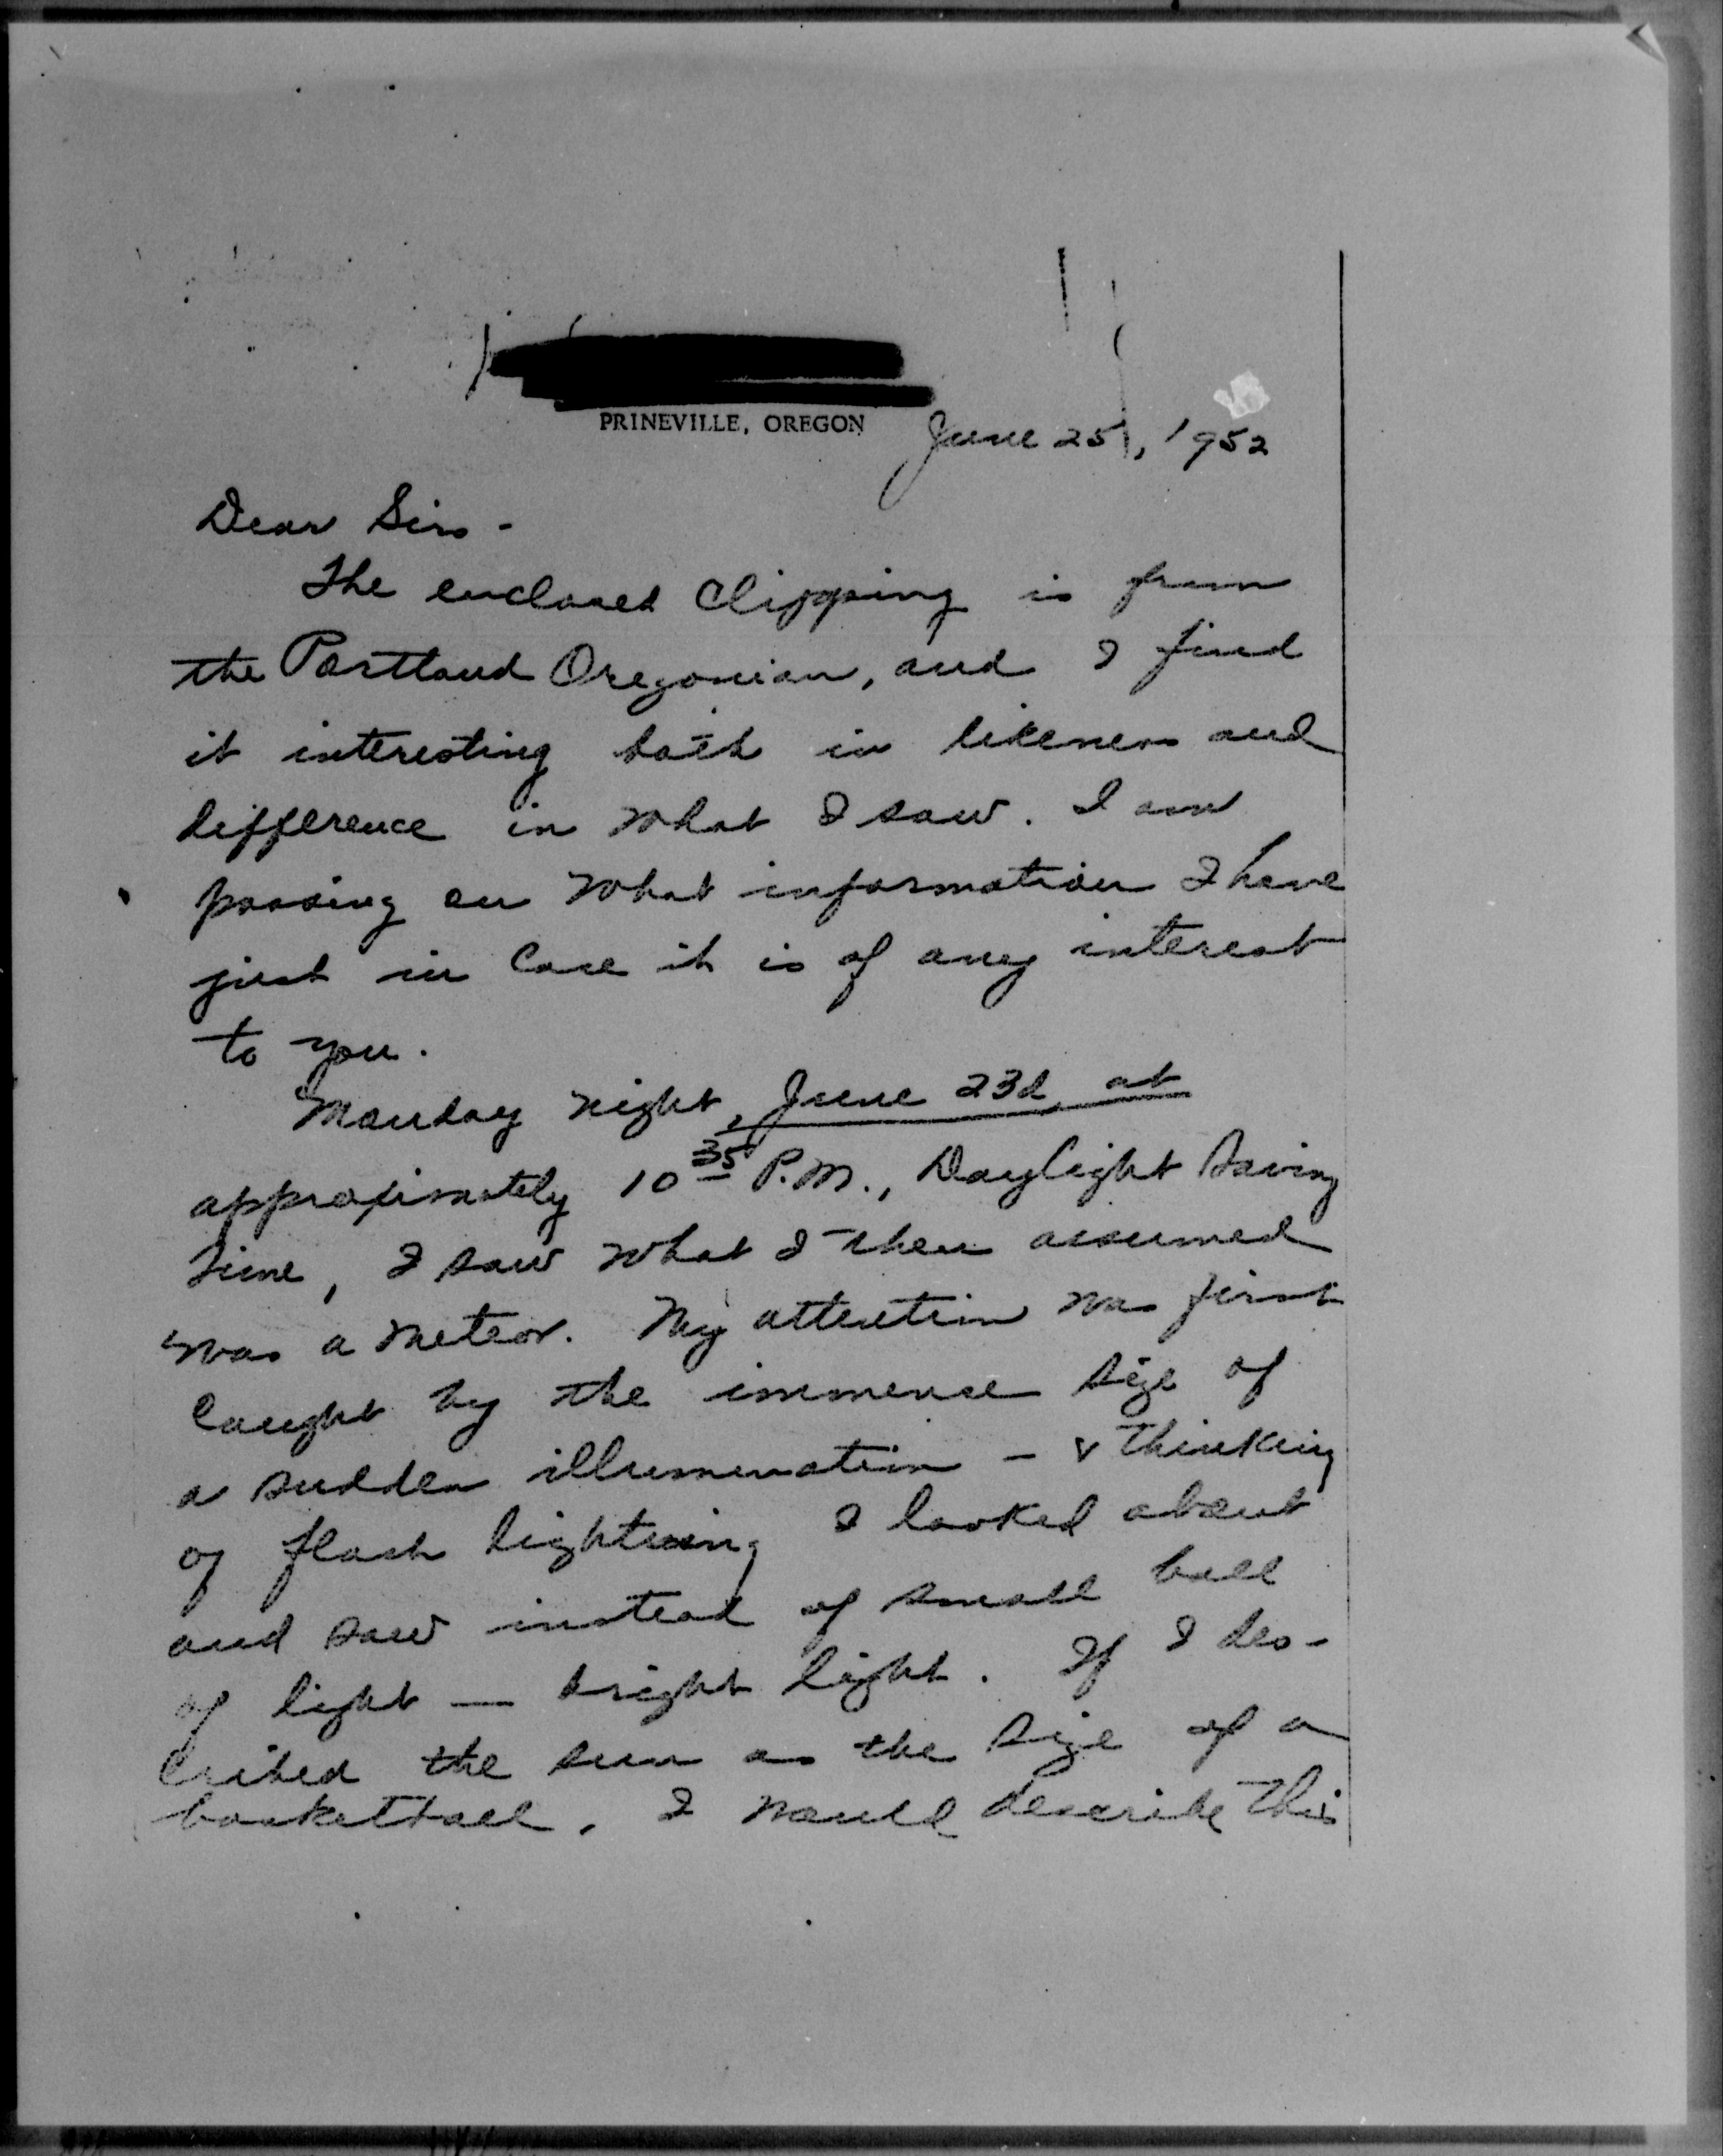 PRINEVILLE, OREGON
June 25, 1952
Dear Sirs -
The enclosed clipping is from
the Portland Oregonian, and I find
it interesting both in likeness and
difference in what I saw. I am
passing on what information I have
just in case it is of any interest
to you.
Monday night, June 23d, at
approximately 10 35 P.M., Daylight Saving
Time, I saw what I then assumed
was a meteor. My attention was first
caught by the immense size of
a sudden illumination - & thinking
of flash lightning I looked about
and saw instead of small ball
of light — bright light. If I des-
cribed the sun as the size of a
basketball, I would describe this